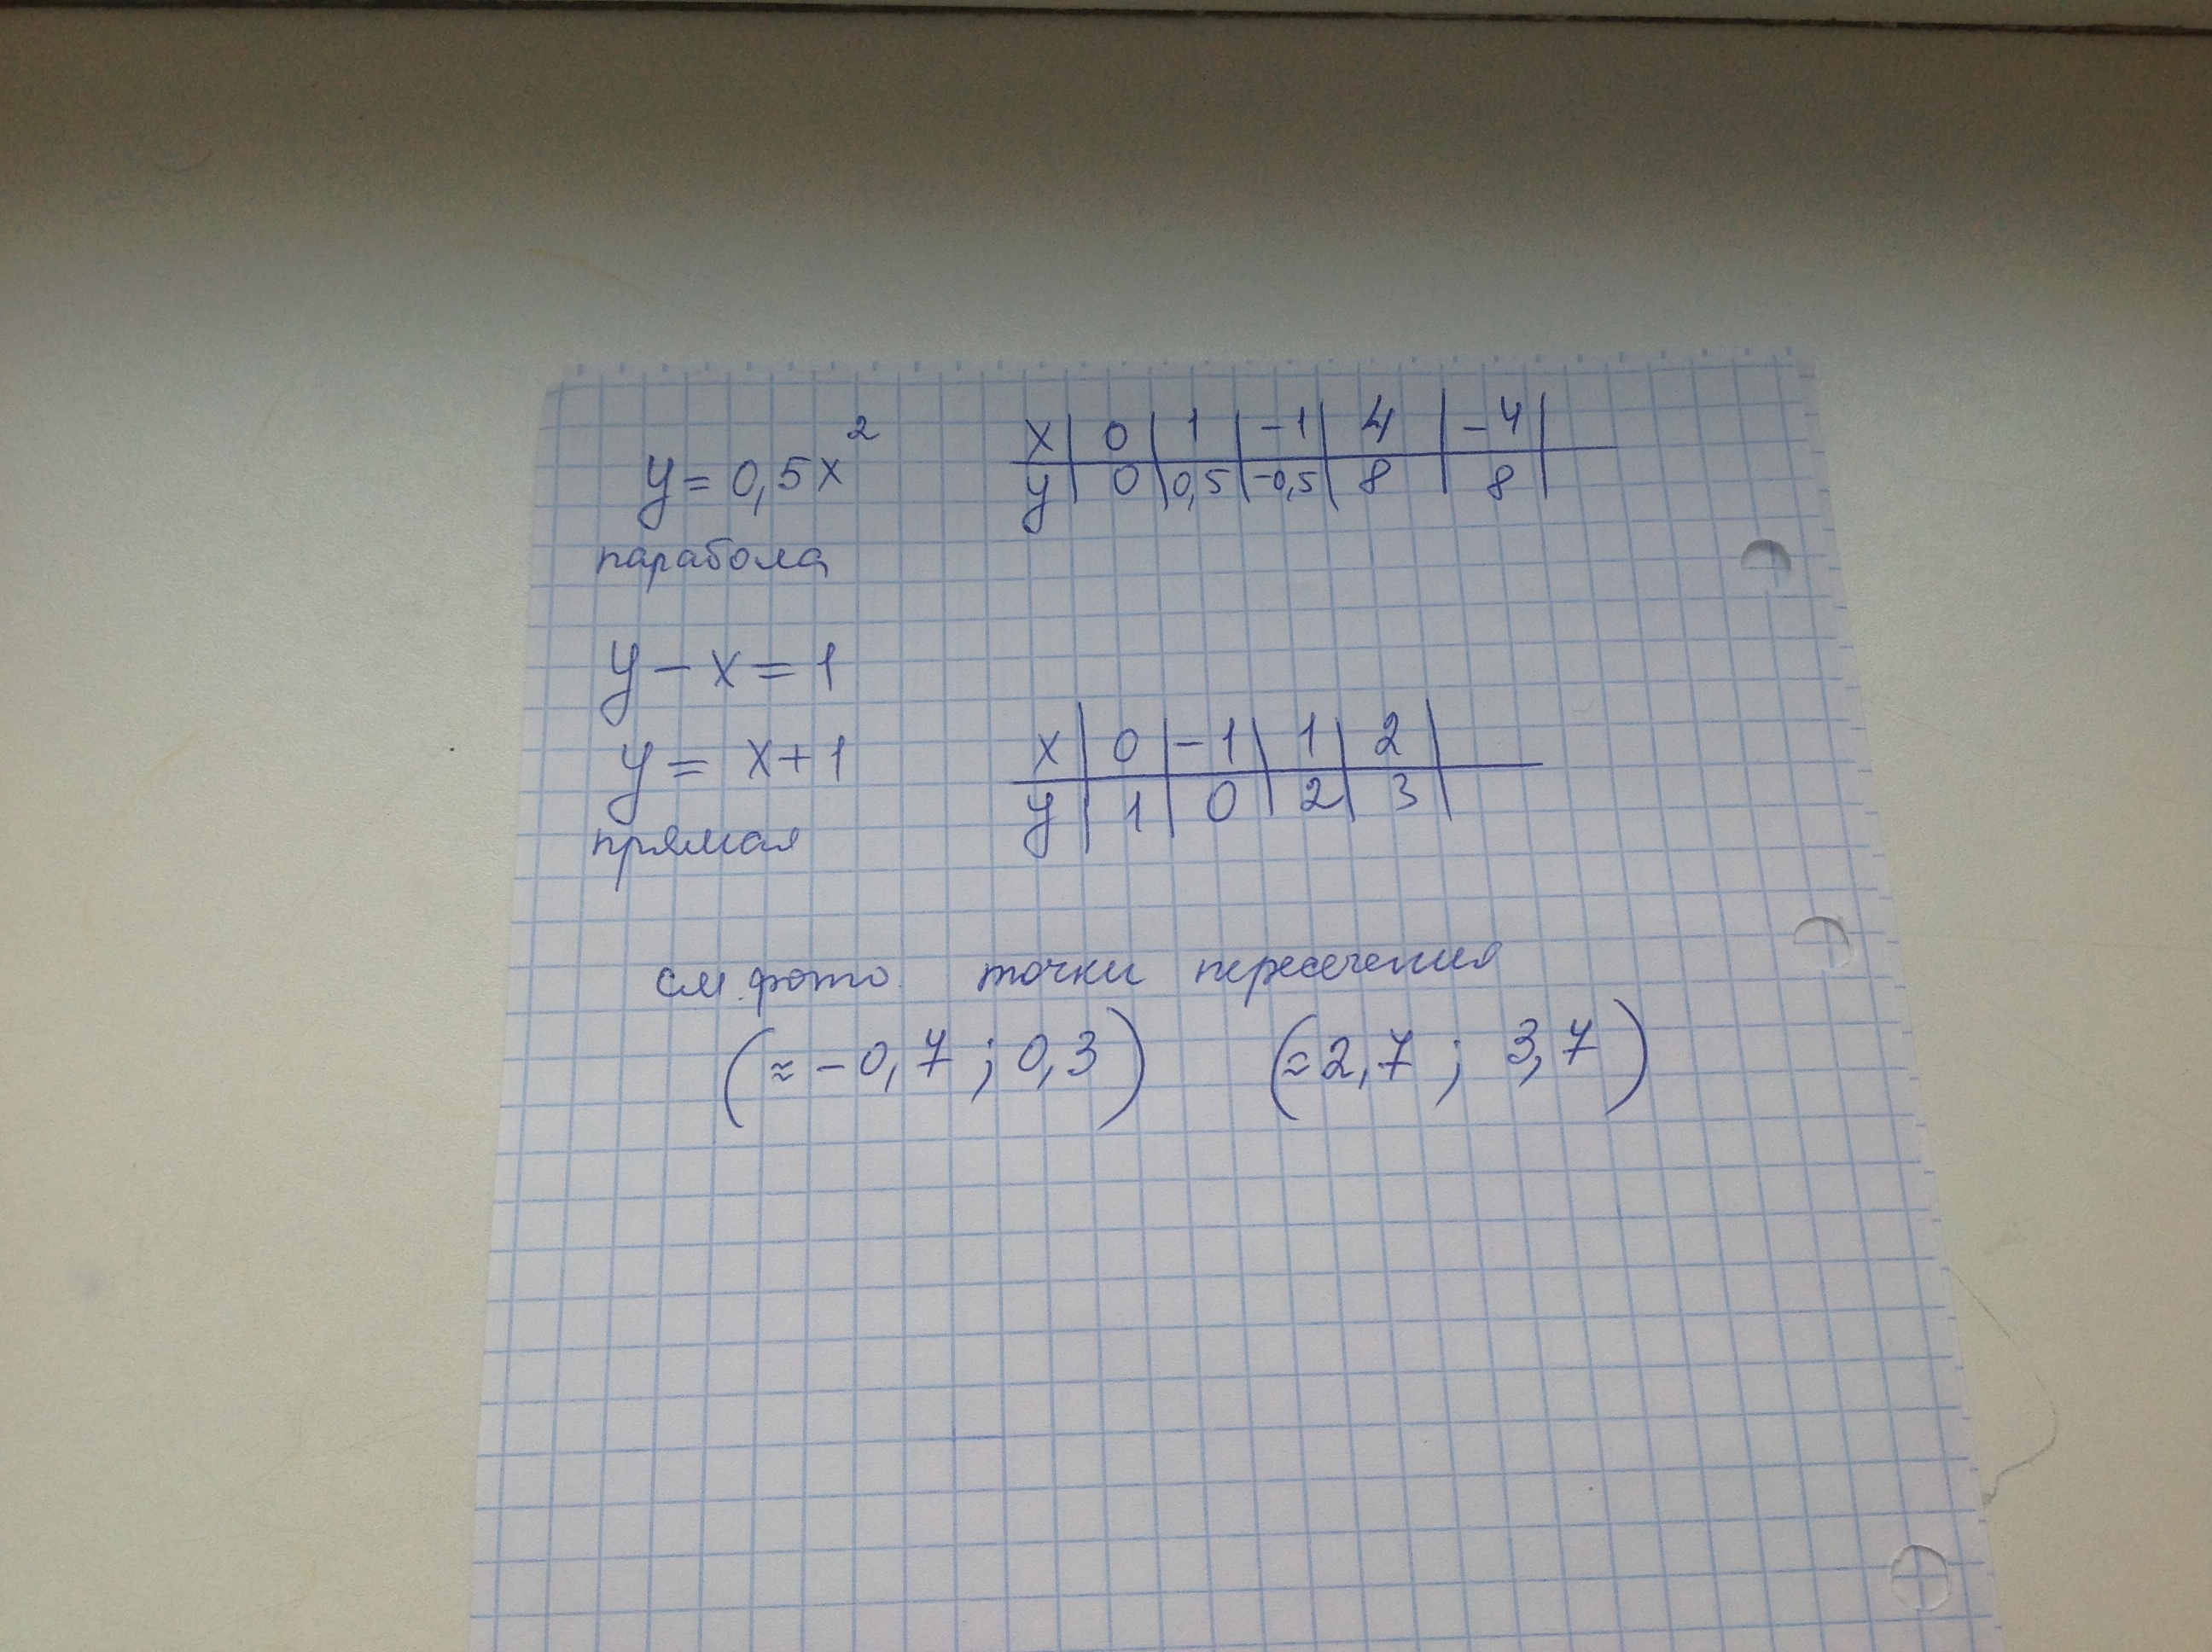 y = 0,5x²
x | 0 | 1 | -1 | 4 | -4 |
y | 0 | 0,5 | -0,5 | 8 | 8 |
парабола
y - x = 1
y = x + 1
x | 0 | -1 | 1 | 2 |
y | 1 | 0 | 2 | 3 |
прямая
см. фото. точки пересечения
(≈ -0,7 ; 0,3) (≈ 2,7 ; 3,7)